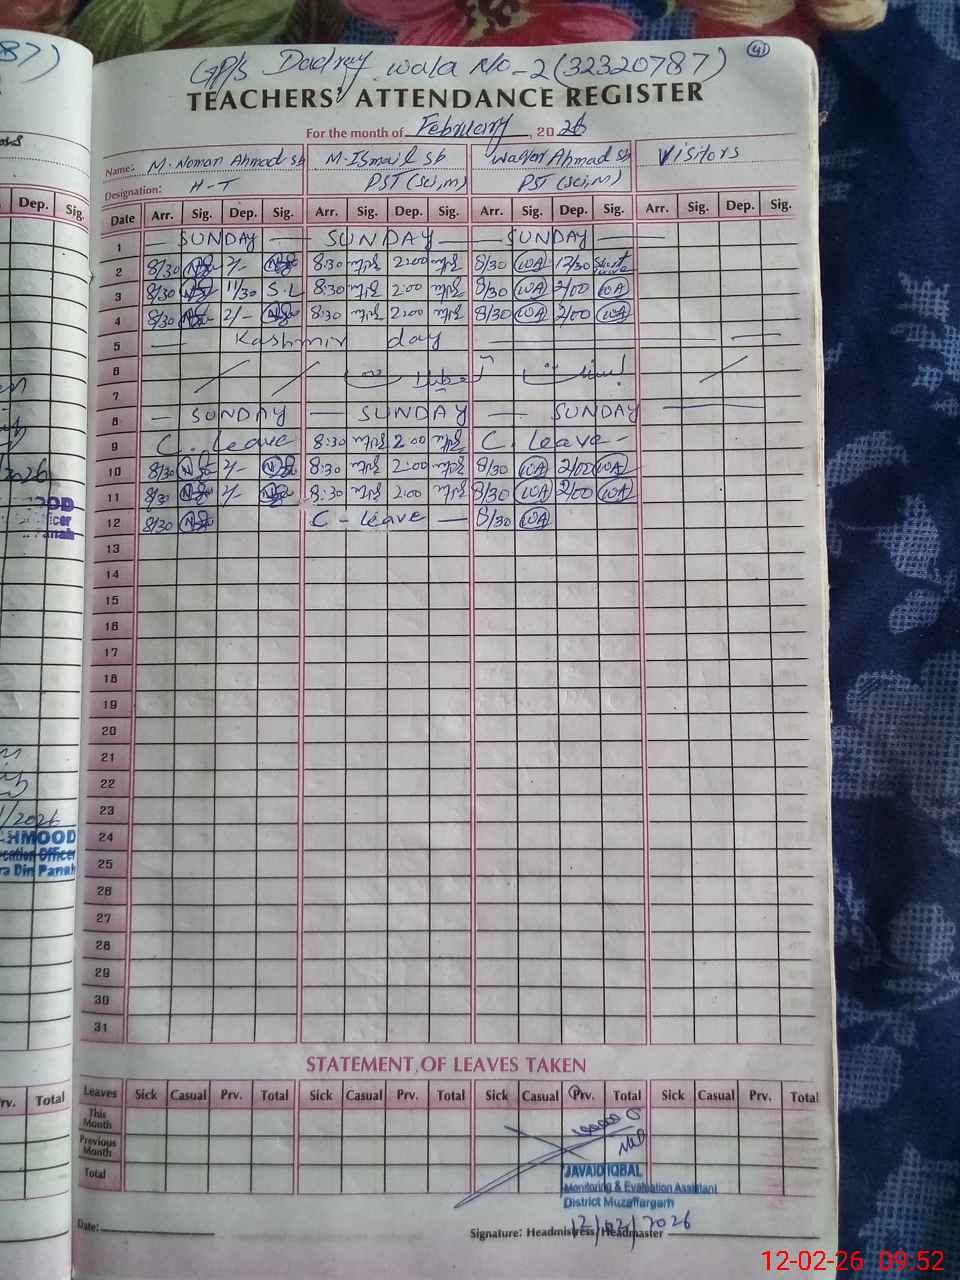 GP/S Dadray wala No-2 (32320787)
41
TEACHERS' ATTENDANCE REGISTER
For the month of February, 2026
Name: M. Noman Ahmad sb M. Ismail sb Ahmad sb Visitors
Designation: H-T PST (Sci, m) PST (Sci, m)
Date Arr. Sig. Dep. Sig. Arr. Sig. Dep. Sig. Arr. Sig. Dep. Sig. Arr. Sig. Dep. Sig.
1 — SUNDAY — SUNDAY — SUNDAY —
2 8/30 2/- 8:30 2:00 8/30 WA 12/30 Short
3 8/30 11/30 S.L 8:30 2:00 8/30 WA 2/00 WA
4 8/30 2/- 8:30 2:00 8/30 WA 2/00 WA
5 — Kashmir day —
6
7
8 — SUNDAY — SUNDAY — SUNDAY —
9 C. Leave 8:30 2:00 C. Leave -
10 8/30 2/- 8:30 2:00 8/30 WA 2/00 WA
11 8/30 2/- 8:30 2:00 8/30 WA 2/00 WA
12 8/30 C - Leave — 8/30 WA
13
14
15
16
17
18
19
20
21
22
23
24
25
26
27
28
29
30
31
STATEMENT OF LEAVES TAKEN
Leaves Sick Casual Prv. Total Sick Casual Prv. Total Sick Casual Prv. Total Sick Casual Prv. Total
This Month
Previous Month
Total
JAVAID IQBAL
Monitoring & Evaluation Assistant
District Muzaffargarh
12/02/2026
Date: Signature: Headmistress/Headmaster
787)
Dep. Sig.
/2026
OOD
icer
Panah
1/2026
HMOOD
cation Officer
ra Din Panah
rv. Total
12-02-26 09.52